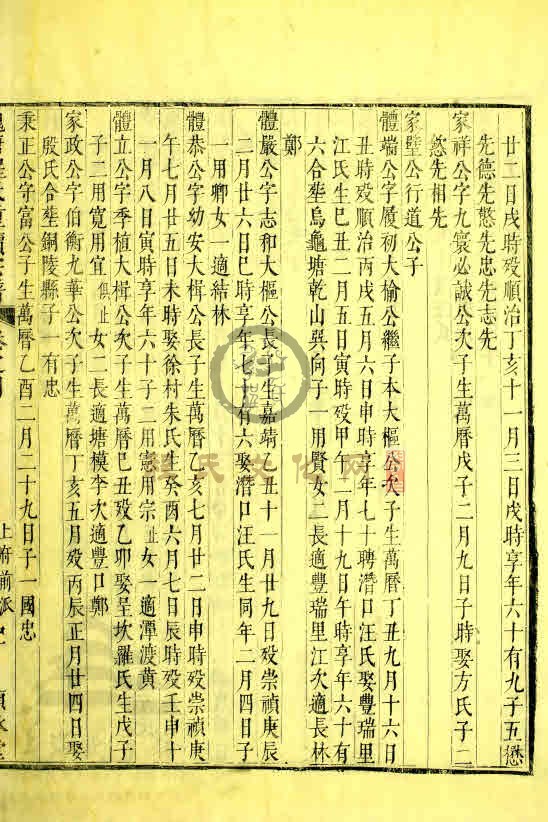 廿二日戌時歿順治丁亥十一月三日戌時享年六十有九子五懋
先德先慜先忠先志先
家祥公字九寰必誠公次子生萬曆戊子二月九日子時娶方氏子二
慜先相先
家璧公行道公子
體端公字履初大榆公繼子本大樞公次子生萬曆丁丑九月十六日
丑時歿順治丙戌五月六日申時享年七十聘潛口汪氏娶豐瑞里
江氏生己丑二月五日寅時歿甲午二月十九日午時享年六十有
六合塟烏龜塘乾山巽向子一用賢女二長適豐瑞里江次適長林
鄭
體嚴公字志和大樞公長子生嘉靖乙丑十一月廿九日歿崇禎庚辰
二月廿六日巳時享年七十有六娶潛口汪氏生同年二月四日子
一用卿女一適結林
體恭公字幼安大楫公長子生萬曆乙亥七月廿二日申時歿崇禎庚
午七月廿五日未時娶徐村朱氏生癸酉六月七日辰時歿壬申十
一月八日寅時享年六十子二用憲用宗止女一適潭渡黃
體立公字季植大楫公次子生萬曆己丑歿乙卯娶呈坎羅氏生戊子
子二用寬用宜俱止女二長適塘模李次適豐口鄭
家政公字伯衡九華公次子生萬曆丁亥五月歿丙辰正月廿四日娶
殷氏合塟銅陵縣子一有忠
秉正公字富公子生萬曆乙酉二月二十九日子一國忠
上府前派